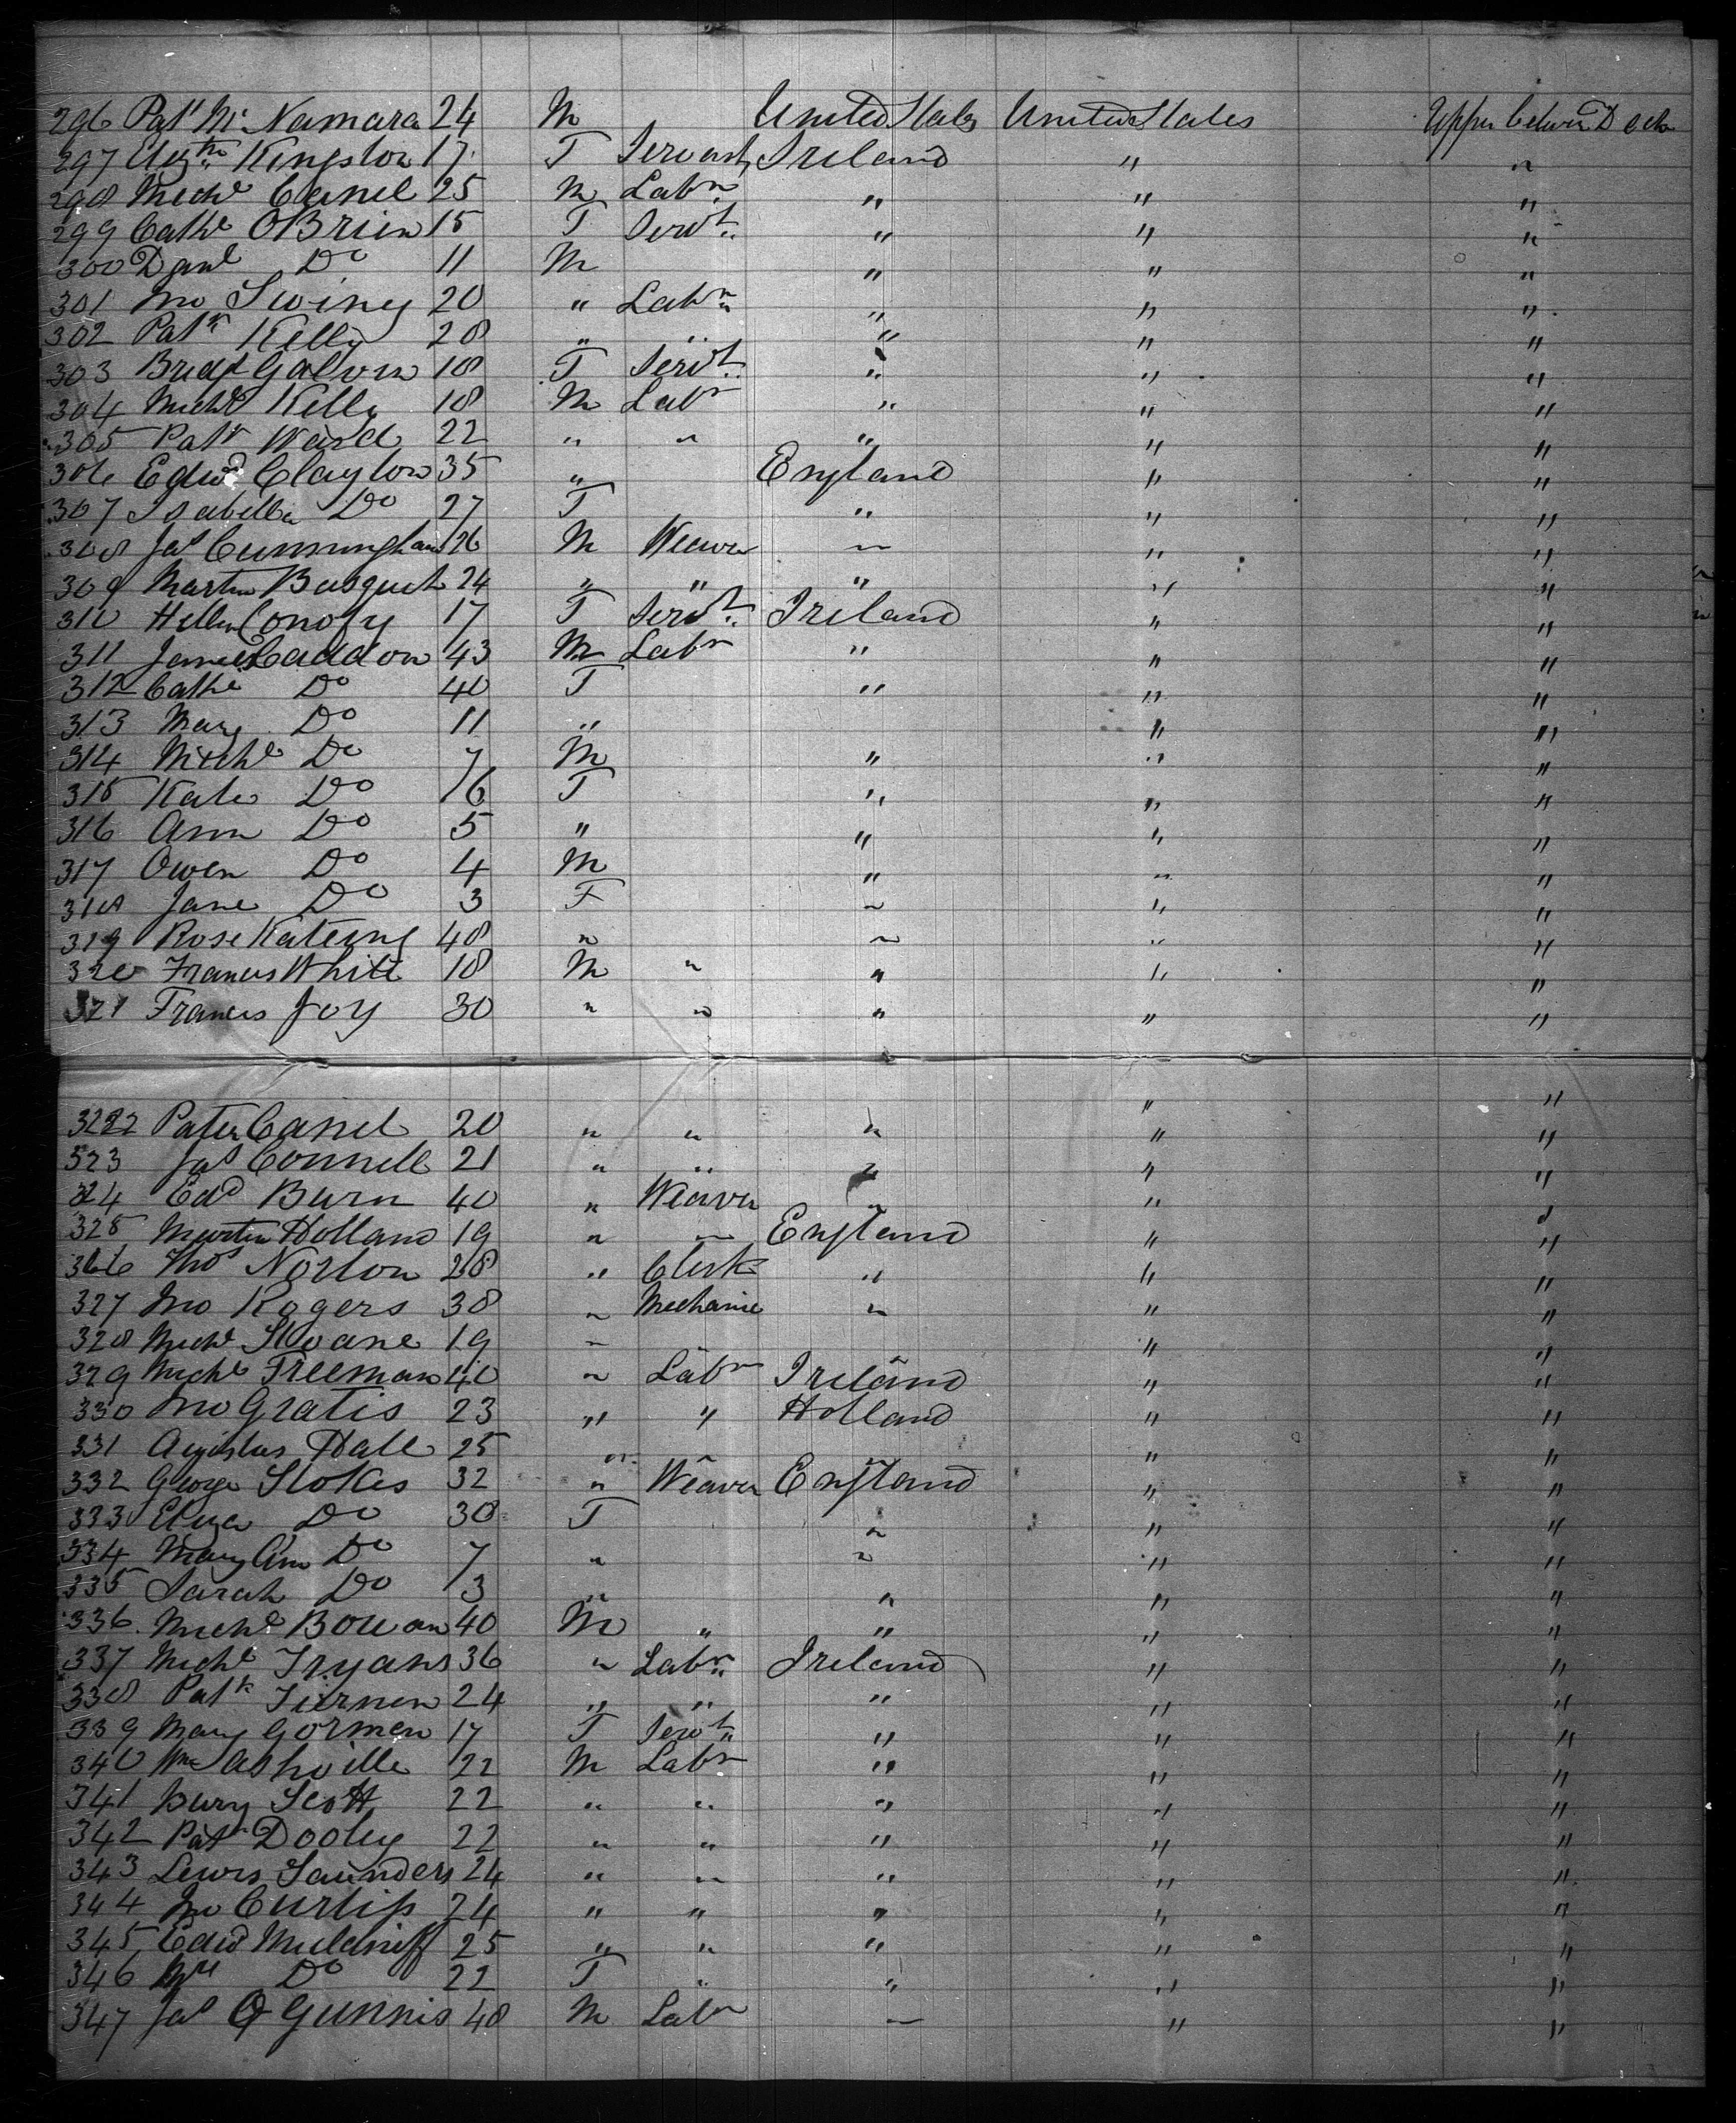 296 Patk Mc Namara 24 M United States United States Upper between Deck
297 Elizth Kingston 17 F Servant Ireland " "
298 Michl Canel 25 M Labr " " "
299 Cathe OBrien 15 F Servt " " "
300 Danl Do 11 M " " "
301 Jno Swiny 20 " Labr " " "
302 Patk Kelly 28 " " " " "
303 Bridgt Galvin 18 F Servt " " "
304 Michl Kelly 18 M Labr " " "
305 Patk Ward 22 " " " " "
306 Edwd Clayton 35 " England " "
307 Isabella Do 27 F " " "
308 Jas Cunningham 26 M Weaver " " "
309 Martin 24 " " " " "
310 Hellen Conofy 17 F Servt Ireland " "
311 James Caddon 43 M Labr " " "
312 Cathe Do 40 F " " "
313 Mary Do 11 " " "
314 Michl Do 7 M " " "
315 Kate Do 6 F " " "
316 Ann Do 5 " " " "
317 Owen Do 4 M " " "
318 Jane Do 3 F " " "
319 Rose 48 " " " "
320 Francis White 18 M " " " "
321 Francis Joy 30 " " " " "
" "
322 Peter Canel 20 " " " " "
323 Jas Connell 21 " " " " "
324 Edd Burn 40 " Weaver " " "
325 Martin Holland 19 " " England " "
326 Thos Norton 28 " Clerk " " "
327 Jno Rogers 38 " Mechanic " " "
328 Michl Sloane 19 " " "
329 Michl Freeman 40 " Labr Ireland " "
330 Jno Gratis 23 " " Holland " "
331 Augustus Hall 25 " " " " "
332 George Stokes 32 " Weaver England " "
333 Eliza Do 30 F " " "
334 Mary Ann Do 7 " " " "
335 Sarah Do 3 " " " "
336 Michl Bowan 40 M " " " "
337 Michl Tryans 36 " Labr Ireland " "
338 Patk Tiernen 24 " " " " "
339 Mary Gormen 17 F Servt " " "
340 Wm Ashville 22 M Labr " " "
341 Scott 22 " " " " "
342 Patk Dooley 22 " " " " "
343 Lewis Saunders 24 " " " " "
344 Jno Curtiss 24 " " " " "
345 Edwd 25 " " " " "
346 Do 22 F " " " "
347 Jas O Gunnis 48 M Labr " " "